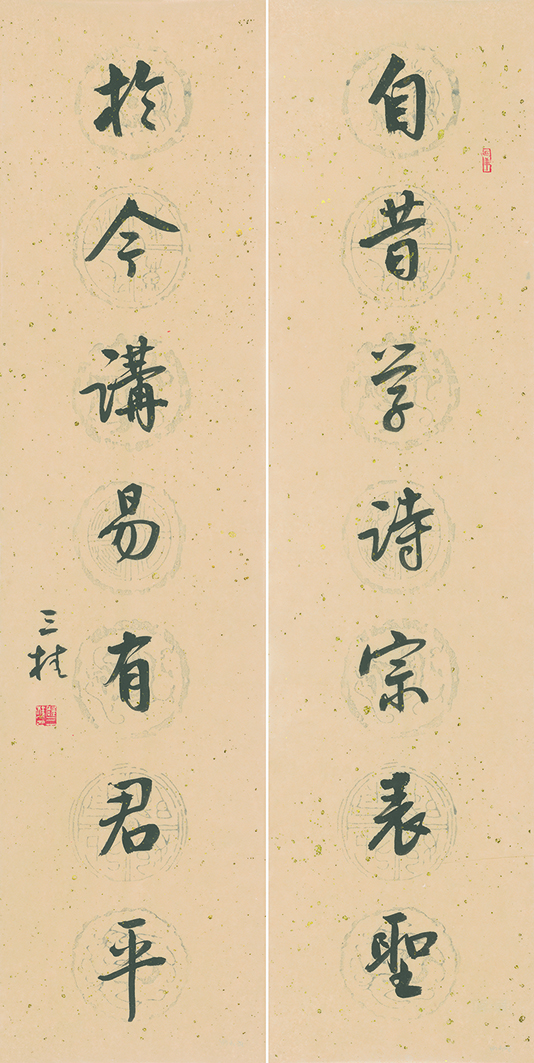 自昔学詩宗表聖
於今講易有君平
三桂